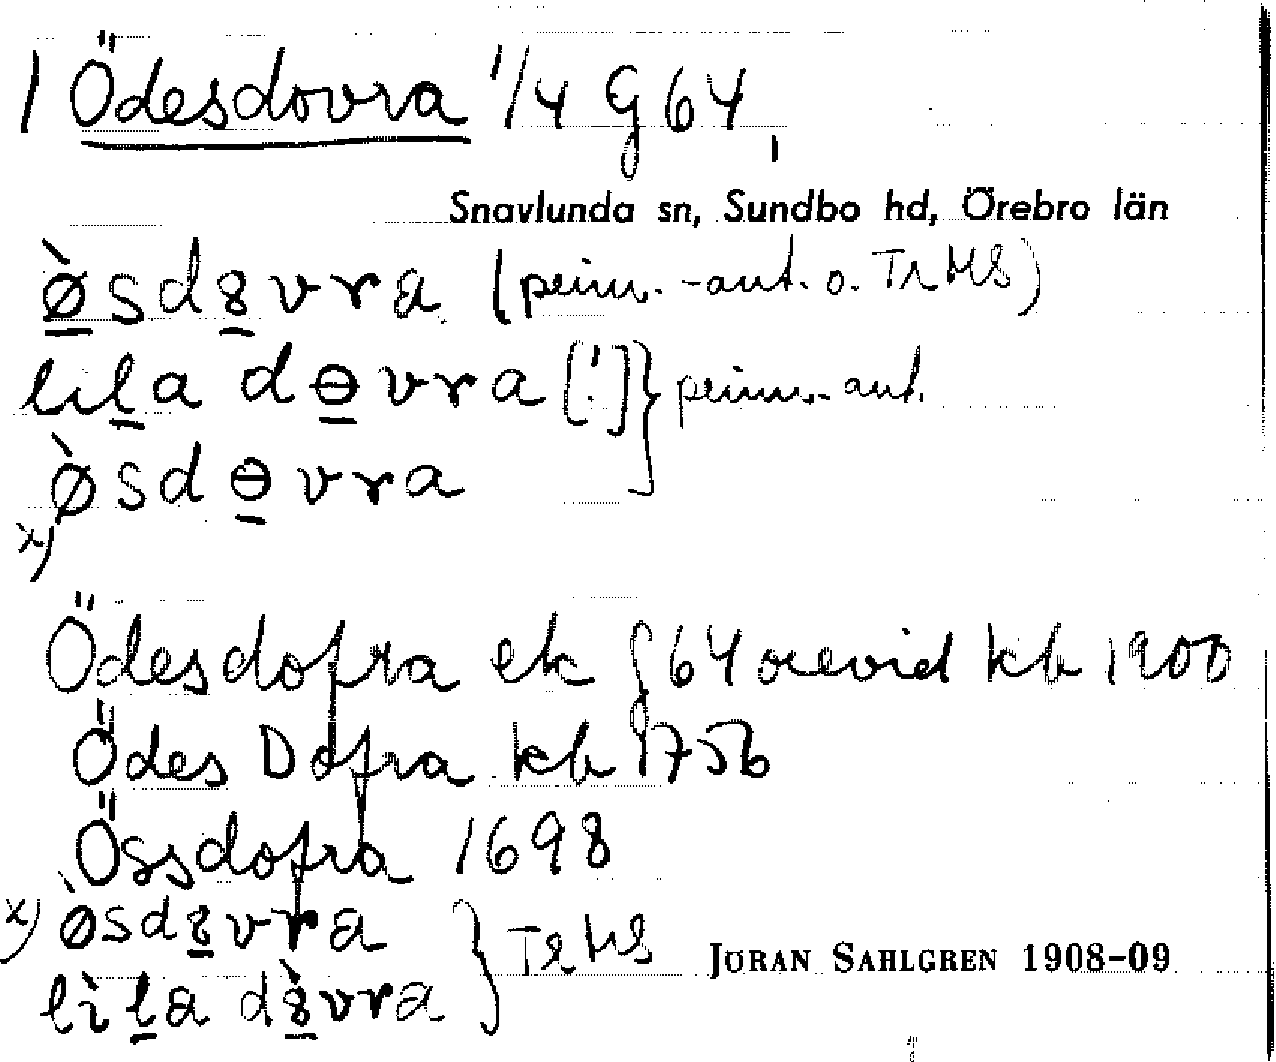 Ödesdovra 1/4 G 64,
Snavlunda sn, Sundbo hd, Örebro län
ø̀sdꝸvra (prim.-ant. o. TrHS)
lila dɵvra [!] } prim.-ant.
ø̀sdɵvra
x)
Ödesdofra ek G 64 orevid kb 1900
Ödes Dofra kb 1756
Össdofra 1698
x) ø̀sdꝸvra } TrHS
lìla dꝸ̀vra
JÖRAN SAHLGREN 1908-09